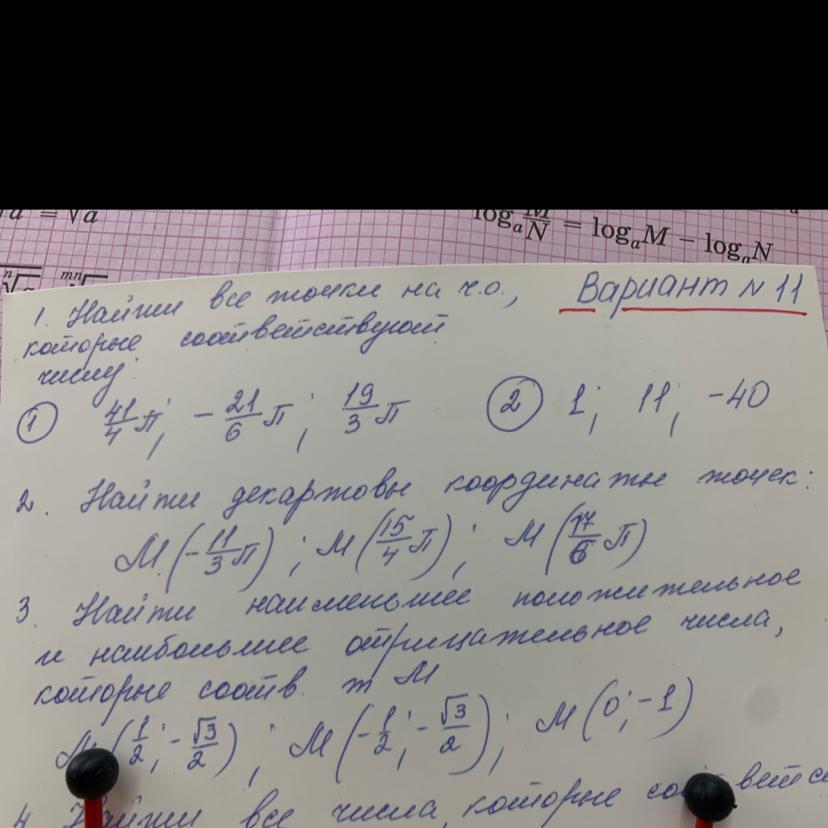 log_a M/N = log_a M − log_a N
1. Найти все точки на ч.о., Вариант N 11
которые соответствуют
числу:
① 41/4 π; −21/6 π; 19/3 π ② 1; 11; −40
2. Найти декартовы координаты точек:
M(−11/3 π); M(15/4 π); M(17/6 π)
3. Найти наименьшее положительное
и наибольшее отрицательное числа,
которые соотв. т M
M(1/2; −√3/2); M(−1/2; −√3/2); M(0; −1)
4. Найти все числа, которые